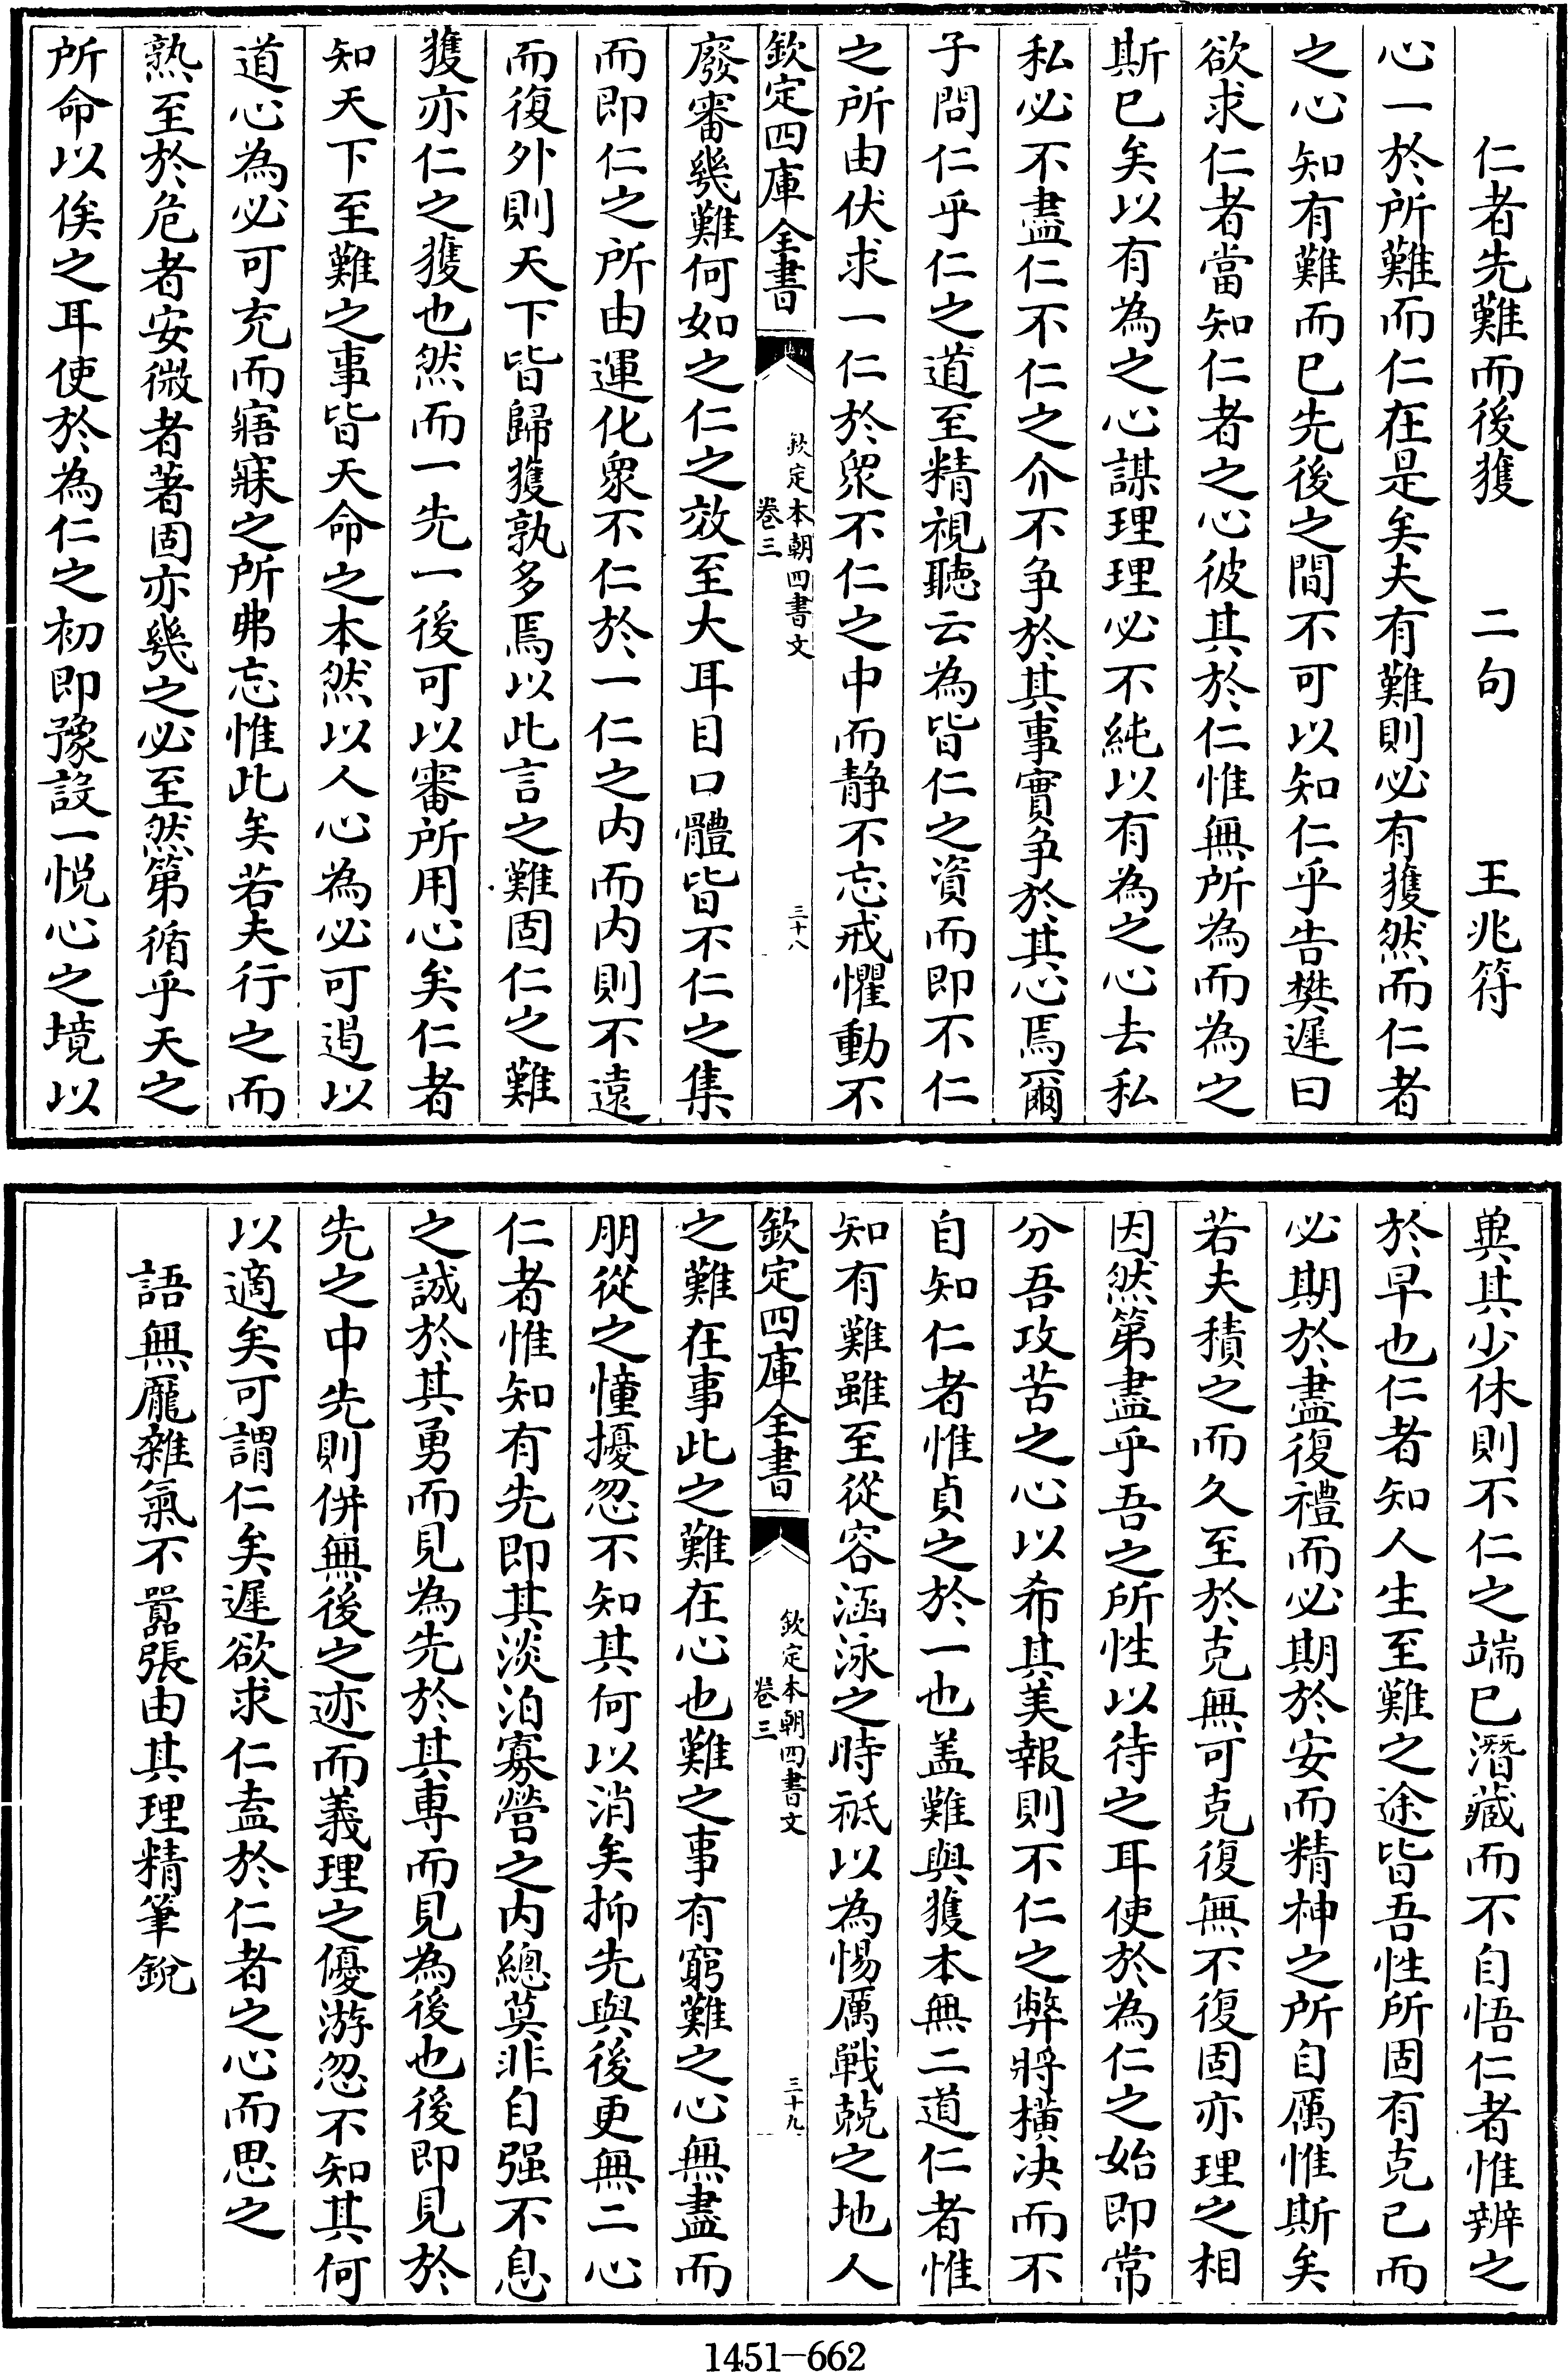 仁者先難而後獲　二句　王兆符
心一於所難而仁在是矣夫有難則必有獲然而仁者
之心知有難而已先後之間不可以知仁乎告樊遲曰
欲求仁者當知仁者之心彼其於仁惟無所為而為之
斯已矣以有為之心謀理理必不純以有為之心去私
私必不盡仁不仁之介不争於其事實争於其心焉爾
子問仁乎仁之道至精視聽云為皆仁之資而即不仁
之所由伏求一仁於衆不仁之中而静不忘戒懼動不
欽定四庫全書　欽定本朝四書文
卷三　三十八
廢審幾難何如之仁之效至大耳目口體皆不仁之集
而即仁之所由運化衆不仁於一仁之内而内則不遠
而復外則天下皆歸獲孰多焉以此言之難固仁之難
獲亦仁之獲也然而一先一後可以審所用心矣仁者
知天下至難之事皆天命之本然以人心為必可遏以
道心為必可充而寤寐之所弗忘惟此矣若夫行之而
熟至於危者安微者著固亦幾之必至然第循乎天之
所命以俟之耳使於為仁之初即豫設一悦心之境以
兾其少休則不仁之端已潛藏而不自悟仁者惟辨之
於早也仁者知人生至難之途皆吾性所固有克己而
必期於盡復禮而必期於安而精神之所自厲惟斯矣
若夫積之而久至於克無可克復無不復固亦理之相
因然第盡乎吾之所性以待之耳使於為仁之始即常
分吾攻苦之心以希其美報則不仁之弊將橫决而不
自知仁者惟貞之於一也盖難與獲本無二道仁者惟
知有難雖至從容涵泳之時祗以為惕厲戰兢之地人
欽定四庫全書　欽定本朝四書文
卷三　三十九
之難在事此之難在心也難之事有窮難之心無盡而
朋從之憧擾忽不知其何以消矣抑先與後更無二心
仁者惟知有先即其淡泊寡營之内總莫非自强不息
之誠於其勇而見為先於其專而見為後也後即見於
先之中先則併無後之迹而義理之優游忽不知其何
以適矣可謂仁矣遲欲求仁盍於仁者之心而思之
語無龐雜氣不囂張由其理精筆銳
1451-662